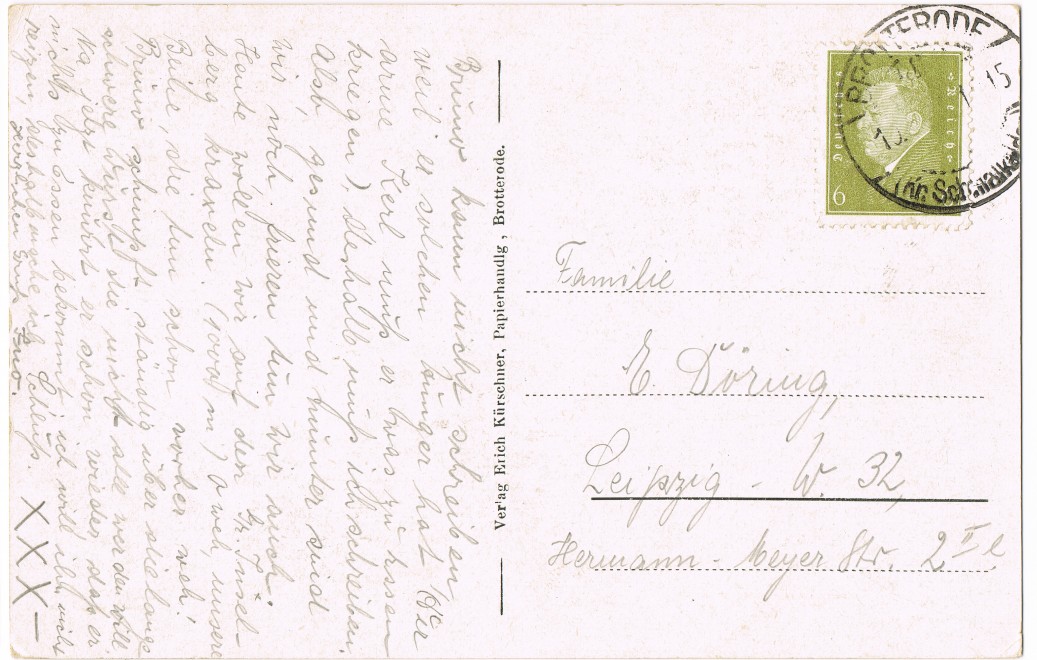 Bruno kann nicht schreiben
weil er solchen Hunger hat (der
arme Kerl muß etwas zu essen
kriegen), deshalb muß ich schreiben.
Also, gesund und munter sind
wir, noch frieren tun wir auch.
Heute wollen wir auf den Gr. Insel-
berg kraxeln. (1000 m) O weh, unsere
Beine, die tun schon vorher weh!
Bruno schimpft ständig über die lange
schwere Wurst die nicht alle werden will
Na jetzt knurrt er schon wieder daß er
nichts zu essen bekommt, ich will ihn nicht
reizen, deshalb mache ich Schluß.
XXX –
Verlag Erich Kürschner, Papierhandlg, Brotterode.
BROTTERODE
15
Deutsches Reich
6
Familie
E. Döring,
Leipzig - W. 32,
Hermann-Meyer Str. 2 II l